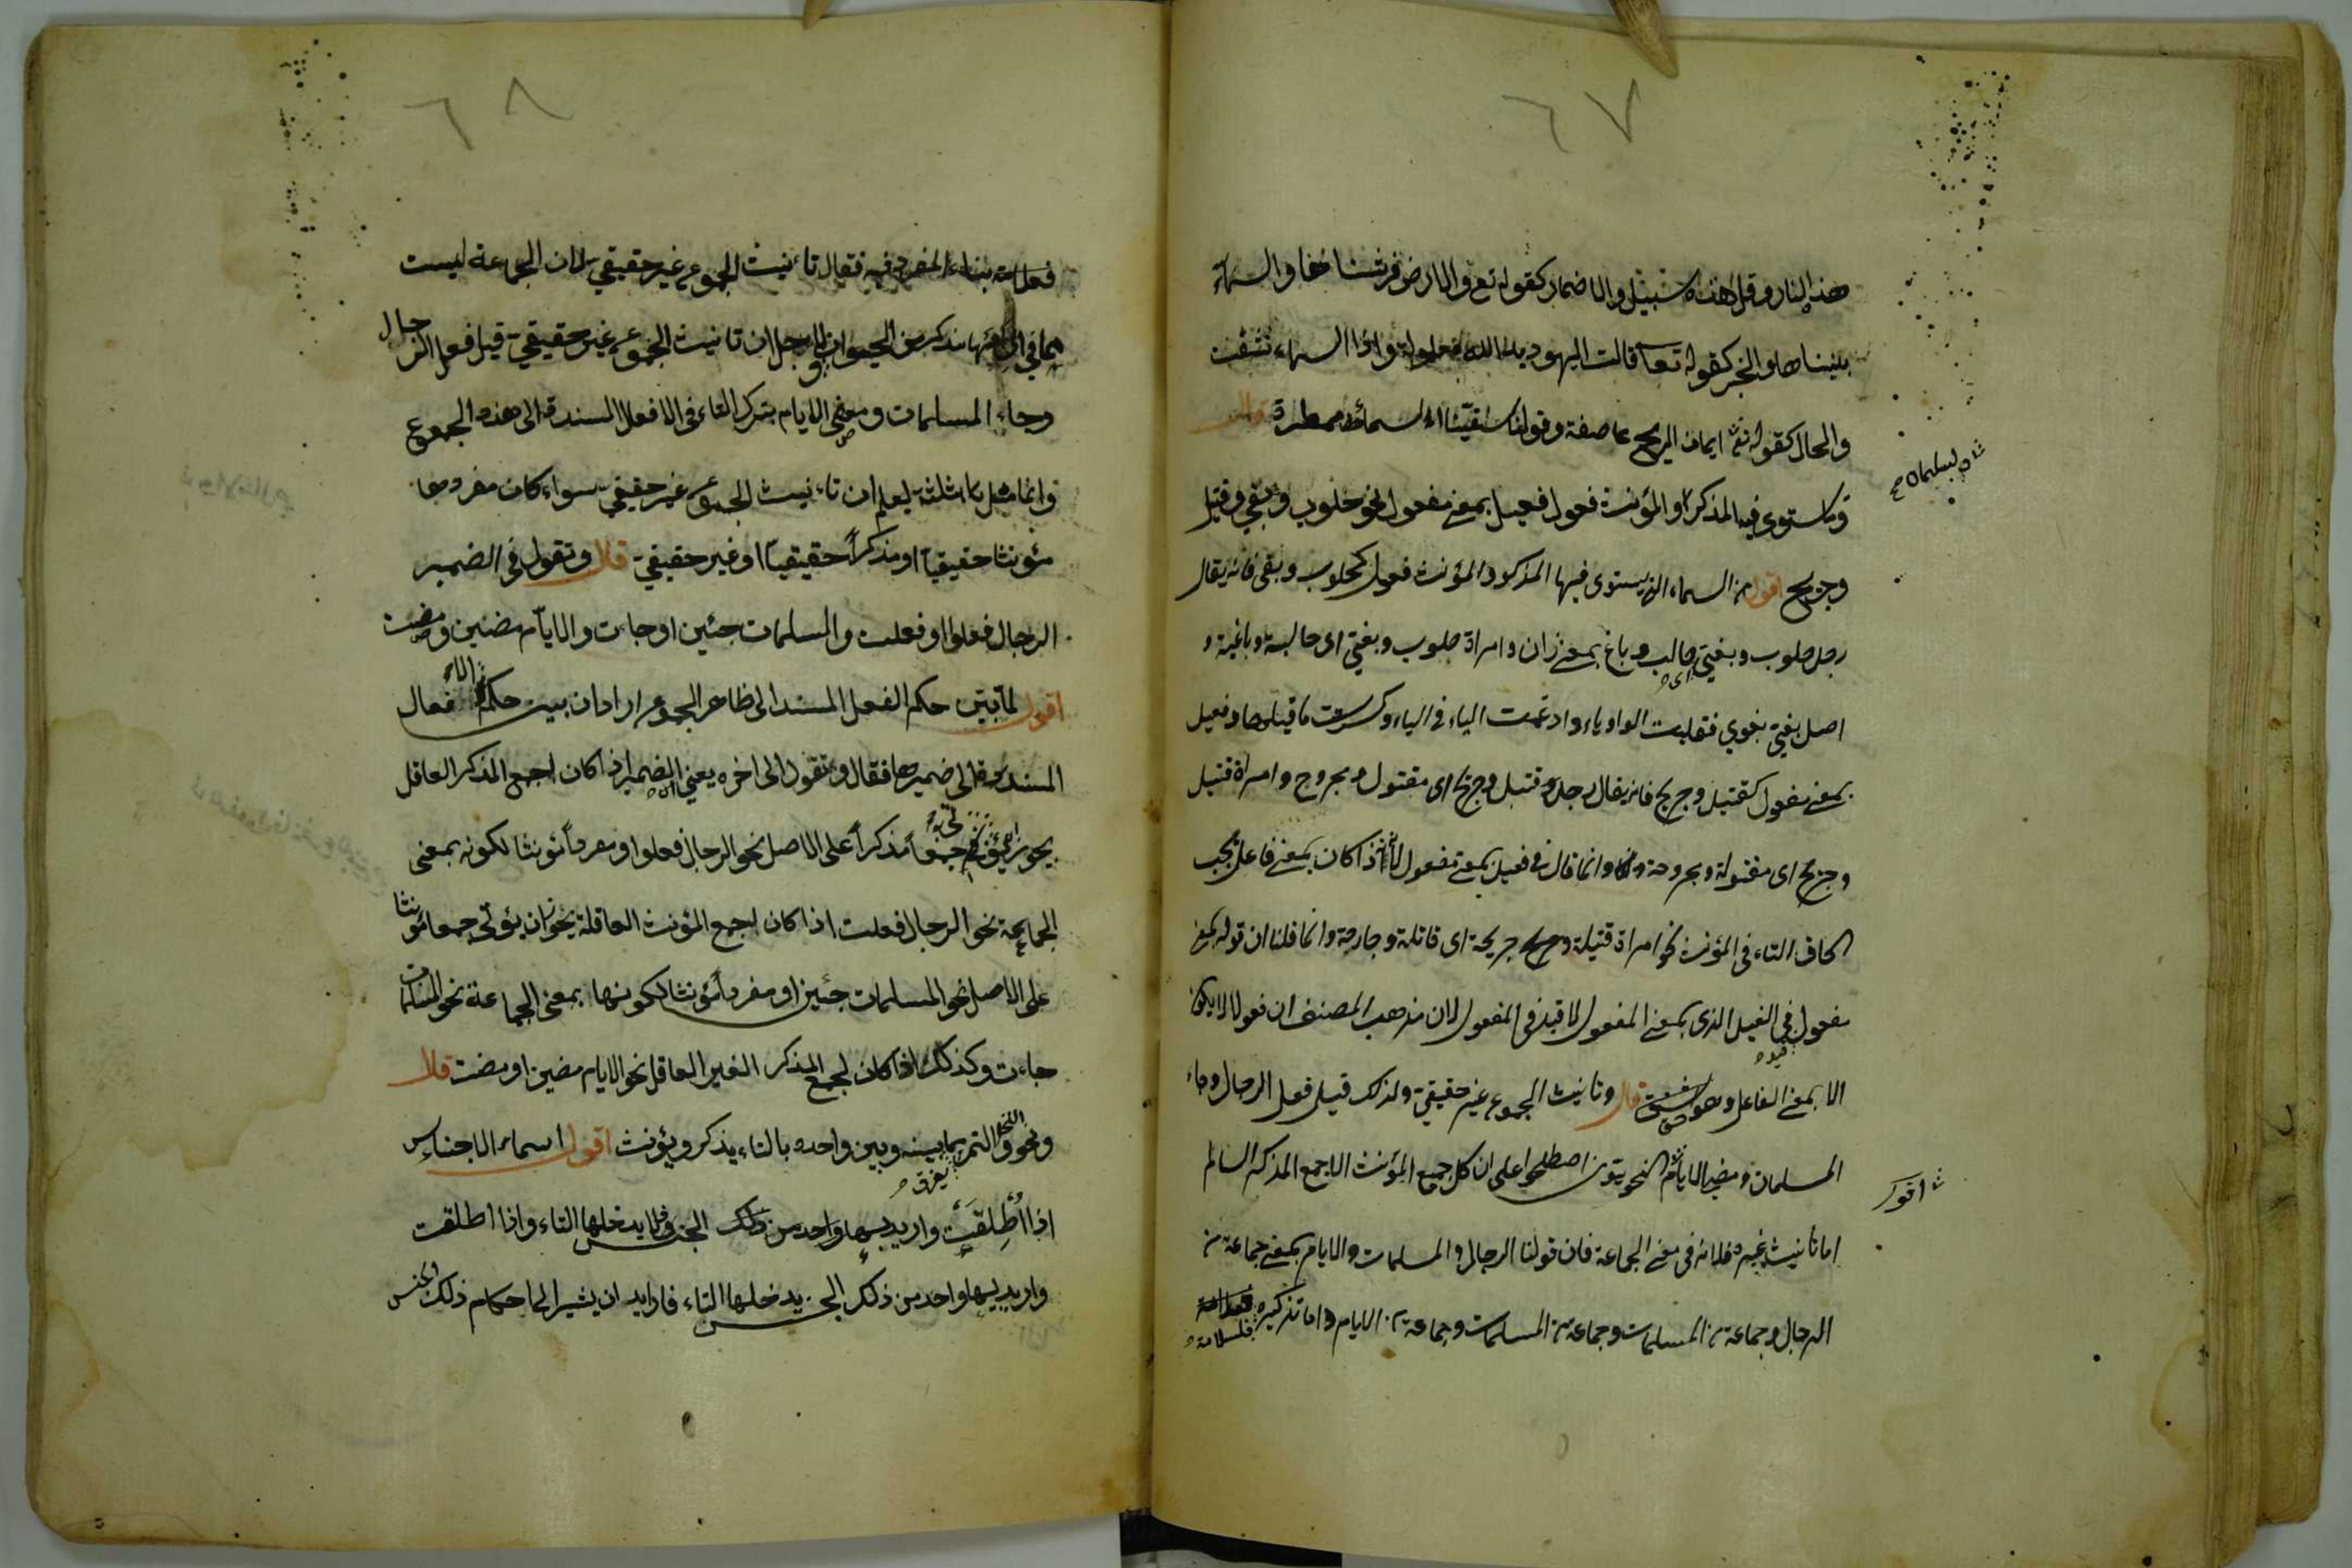 ٦٧
هذه النار وقل هذه سبيلي والاضمار كقوله تع والارض فرشناها والسماء
بنيناها والخبر كقوله تعا قالت اليهود يد الله مغلولة واذا السماء نشقت
والحال كقوله تع الريح عاصفة وقولنا السماء ممطرة قال
وما ستوى فيه المذكر والمؤنث فعول فعيل بمعنى مفعول نحو حلوب وبغي وقتيل
وجريح اقول من السماء الذي يستوى فيها المذكر والمؤنث فعول كحلوب وبغى فانه يقال
رجل حلوب وبغي اى حالب وباغ بمعنى زان وامراة حلوب وبغي اى حالبة وباغية و
اصل بغي بغوي فقلبت الواو ياء وادغمت الياء في الياء وكسرت ما قبلها وفعيل
بمعنى مفعول كقتيل وجريح فانه يقال رجل قتيل وجريح اى مقتول ومجروح وامراة قتيل
وجريح اى مقتولة ومجروحة وانما قال في فعيل بمعنى مفعول لانه اذا كان بمعنى فاعل يجب
الحاق التاء فى المؤنث نحو امراة قتيلة وجريحة اى قاتلة وجارحة وانما قلنا ان قوله بمعنى
مفعول قيد في الفعيل الذى بمعنى المفعول لا قيد فى المفعول لان مذهب المصنف ان فعولا لا يكون
الا بمعنى الفاعل وهو قال وتانيث الجموع غير حقيقي ولذلك قيل فعل الرجال وجاء
المسلمات ومضى الايام النحويون اصطلحوا على ان كل جميع المؤنث الا جمع المذكر السالم
ش اقول
اما تانيث غيره فلانه فى معنى الجماعة فان قولنا الرجال والمسلمات والايام بمعنى جماعة من
الرجال وجماعة من المسلمات وجماعة من المسلمات وجماعة من الايام واما تذكيره فلسلامة
٦٨
بناء المفرد فيه فقال تاءنيث الجموع غير حقيقي لان الجماعة ليست
مذكر من الحيوان ولاجل ان تانيث الجموع غير حقيقي قيل فعل الرجال
وجاء المسلمات ومضى الايام بترك التاء فى الافعال المسندة الى هذه الجموع
وانما مثل بامثلة ليعلم ان تاءنيث الجموع غير حقيقي سواء كان مفردها
مؤنثا حقيقيا او مذكرا حقيقيا او غير حقيقي قال وتقول فى الضمير
الرجال فعلوا او فعلت والمسلمات جئين او جاءت والايام مضين ومضت
اقول لما بين حكم الفعل المسند الى ظاهر الجموع اراد ان يبين حكم الافعال
المسندة الى ضميرها فقال وتقول الى اخره يعنى الضمير اذا كان لجمع المذكر العاقل
يجوز ان يؤتى به جمعا مذكرا على الاصل نحو الرجال فعلوا او مفردا مؤنثا لكونه بمعنى
الجماعة نحو الرجال فعلت اذا كان لجمع المؤنث العاقلة يجوز ان يؤتى جمعا مؤنثا
على الاصل نحو المسلمات جئين او مفردا مؤنثا لكونها بمعنى الجماعة نحو المسلمات
جاءت وكذلك اذا كان لجمع المذكر الغير العاقل نحو الايام مضين او مضت قال
ونحو النخل والتمر مما يفرق بينه وبين واحده بالتاء يذكر ويؤنث اقول اسماء الاجناس
اذا أُطلِقَت واريد بها واحد من ذلك الجنس فلا يدخلها التاء واذا اطلقت
واريد بها واحد من ذلك الجنس يدخلها التاء فارايد ان يشير الى احكام ذلك الجنس